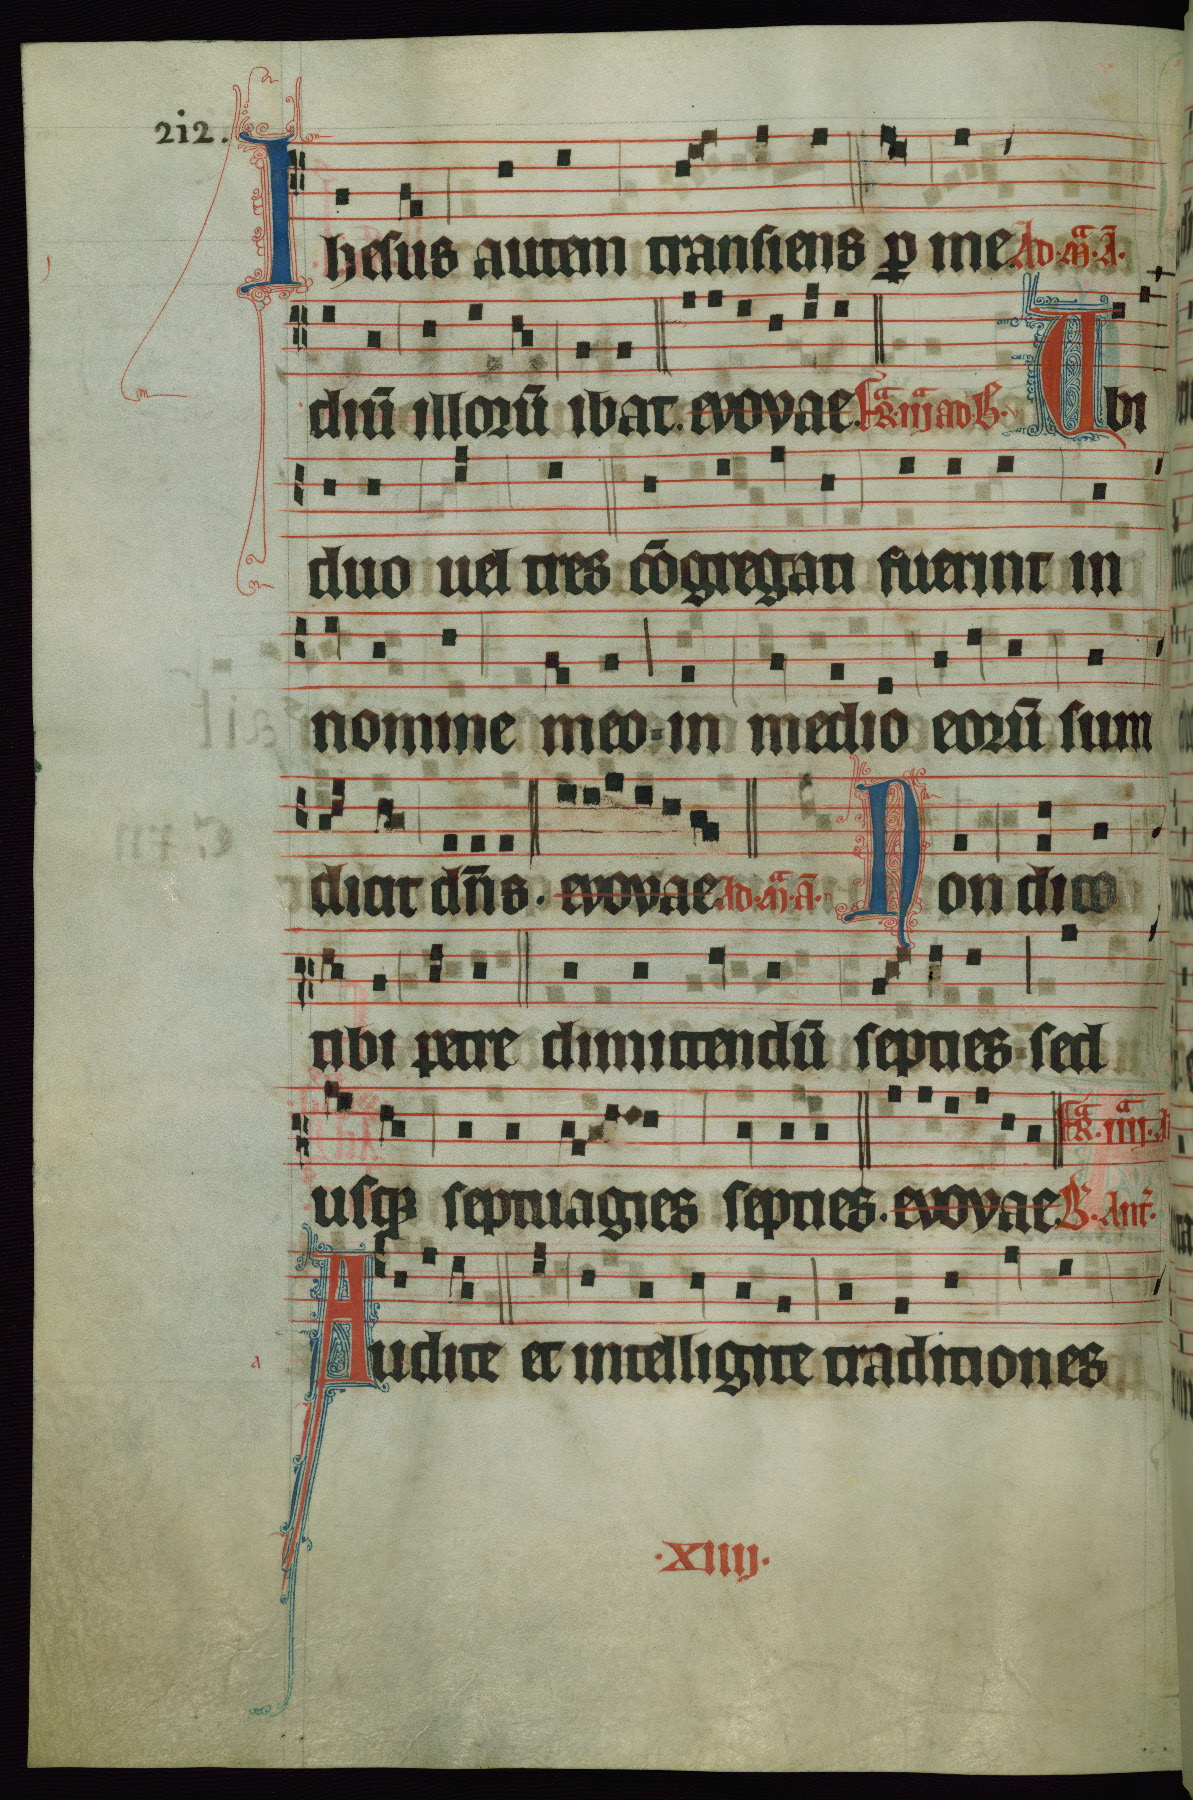 212.
Ihesus autem transiens ꝑ me Ad·m̄·ā·
diū illorū ibat. evovae. fr̄a·iij ad b· Ubi
duo uel tres cōgregati fuerint in
nomine meo in medio eorū sum
dicit dn̄s. evovae Ad·m̄·ā· Non dico
tibi petre dimittendū septies sed
fr̄a·iiij·
usqꝫ septuagies septies. evovae B· Ant̄·
Audite et intelligite traditiones
a
·XIIIJ·